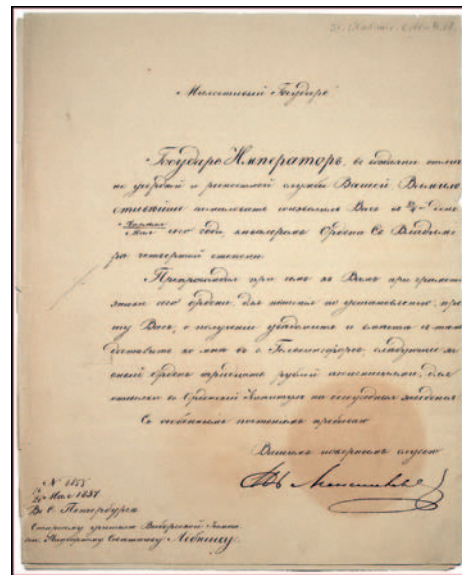 Милостивый Государь
Государь Императоръ, въ воздаяніе отлич
но усердной и ревностной службы Вашей Всемило
стивѣйше пожаловать соизволилъ Васъ въ день
сего года, кавалеромъ Ордена Св Владимі
ра четвертой степени.
Препровождая при семъ къ Вамъ при грамотѣ
знаки сего ордена, для ношенія по установленію, про
шу Васъ, о полученіи увѣдомить и вмѣстѣ съ тѣмъ
доставить ко мнѣ въ г. Гельсингфорсъ, слѣдующіе за
оный орденъ тридцать рублей ассигнаціями, для
отсылки въ Орденскій Капитулъ на богоугодныя заведенія
Съ особеннымъ почтеніемъ пребываю
Вашимъ покорнымъ слугою
N 1855
Мая 1837
Въ С. Петербургѣ